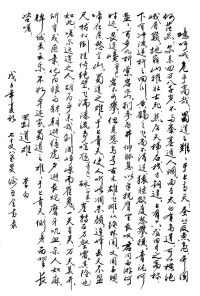 噫吁嚱危乎高哉蜀道之难难于上青天蚕丛及鱼凫开国
何茫然尔来四万八千岁不与秦塞通人烟西当太白有鸟道可以横绝
峨眉巅地崩山摧壮士死然后天梯石栈相钩连上有六龙回日之高标
下有冲波逆折之回川黄鹤之飞尚不得过猿猱欲度愁攀援青泥何盘
盘百步九折萦岩峦扪参历井仰胁息以手抚膺坐长叹问君西游何
时还畏途巉岩不可攀但见悲鸟号古木雄飞雌从绕林间又闻子规
啼夜月愁空山蜀道之难难于上青天使人听此凋朱颜连峰去天不盈
尺枯松倒挂倚绝壁飞湍瀑流争喧豗砯崖转石万壑雷其险也
如此嗟尔远道之人胡为乎来哉剑阁峥嵘而崔嵬一夫当关万夫莫
开所守或匪亲化为狼与豺朝避猛虎夕避长蛇磨牙吮血杀人如麻
锦城虽云乐不如早还家蜀道之难难于上青天侧身西望长
咨嗟
蜀道难 李白
戊子年夏月